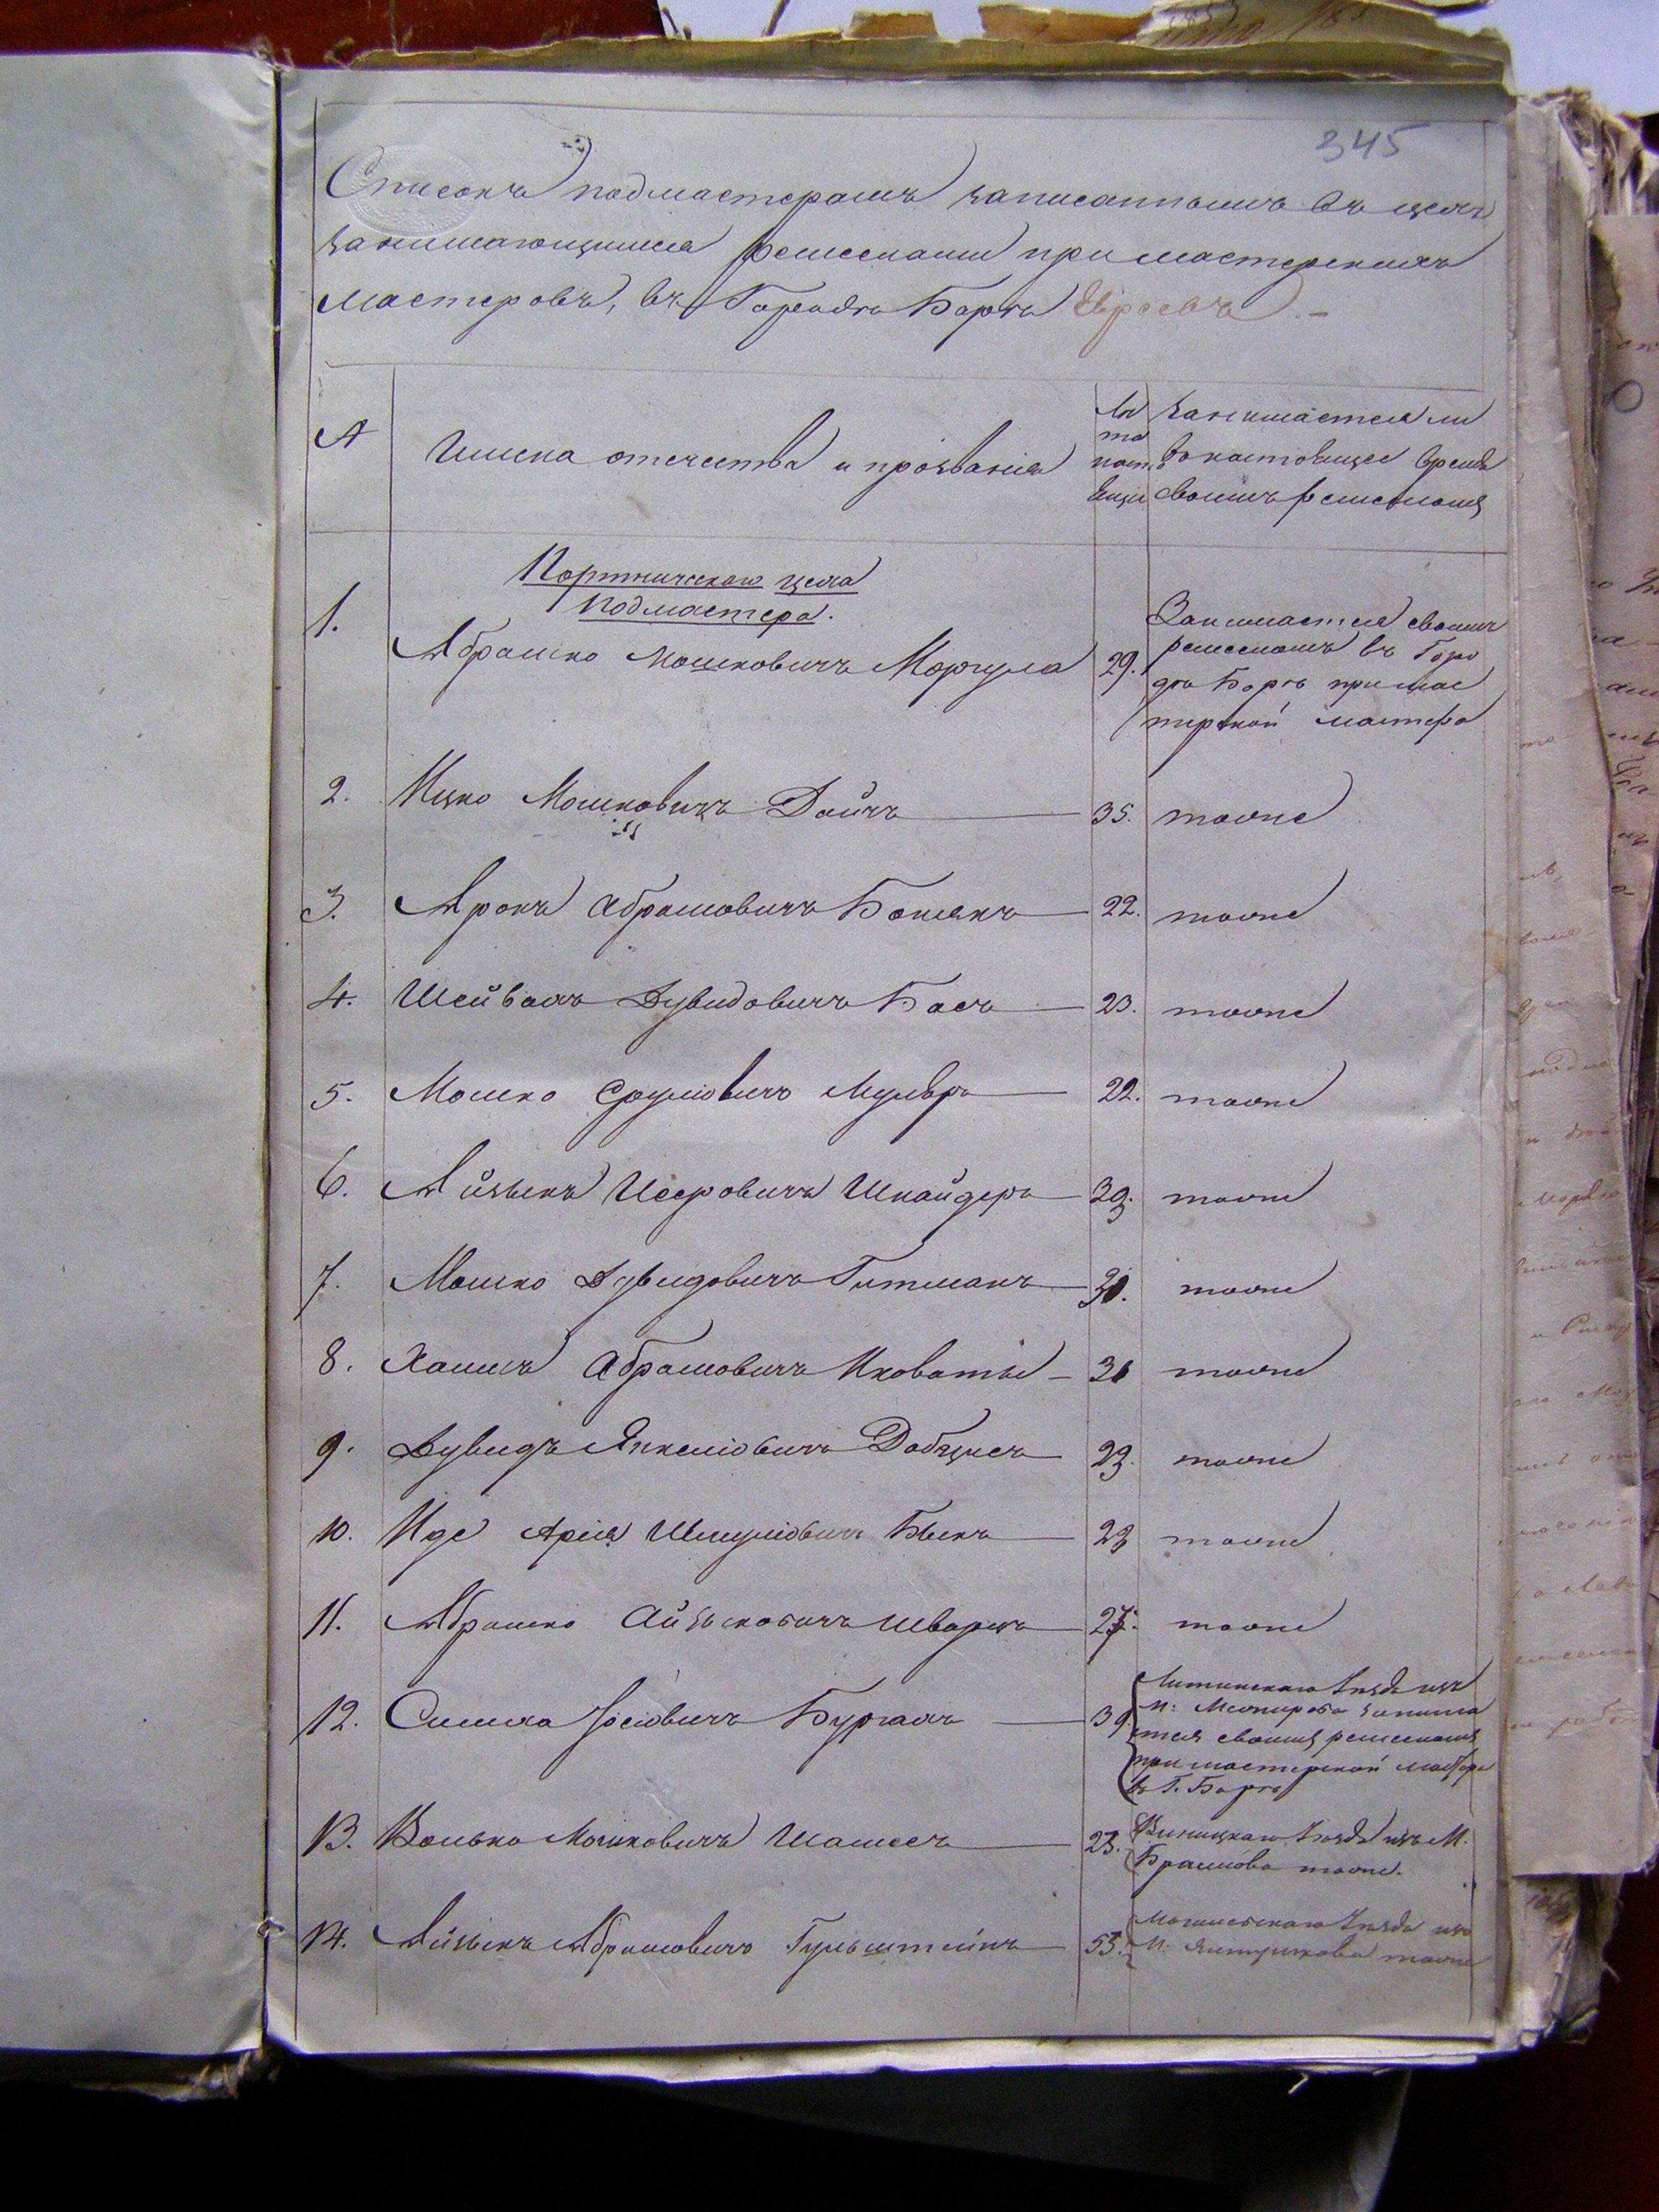 345
Списокъ подмастерамъ записаннымъ въ цехъ
занимающимся ремеслами при мастерскихъ
мастеровъ, въ Городѣ Барѣ Евреевъ. –
№
Имена отечества и прозвания
Лѣ
та
наст
ящи
Занимается ли
въ настоящее время
своимъ ремесломъ
Портническаго цеха
Подмастера.
1. Абрамко Мошковичъ Моргула 29.
Занимается своимъ
ремесломъ въ Горо
дѣ Барѣ при мас
терской мастера
2. Ицко Мошковичъ Дайчъ 35. тоже
3. Аронъ Абрамовичъ Бошякъ 22. тоже
4. Шейвахъ Дувидовичъ Басъ 23. тоже
5. Мошко Сруліовичъ Муляръ 22. тоже
6. Айзыкъ Исеровичъ Шнайдеръ 39. тоже
7. Мошко Дувидовичъ Гитманъ 30. тоже
8. Хаимъ Абрамовичъ 30 тоже
9. Дувидъ Янкеліовичъ 23. тоже
10. Иде Арія Шмуліовичъ Быкъ 23 тоже
11. Абрамко Айзыковичъ Шварцъ 27. тоже
12. Симха Іосіовичъ Бурганъ 39.
Литинскаго Уезда изъ
М: Межирова занима
тся своимъ ремесломъ
при мастерской мастера
въ Г. Барѣ
13. Волько Мошковичъ Шамесъ 23.
Виницкаго Уезда изъ М.
Браилова тоже.
14. Айзыкъ Абрамовичъ Гульштейнъ 53.
Могилевскаго Уезда изъ
М: Ялтушкова тоже